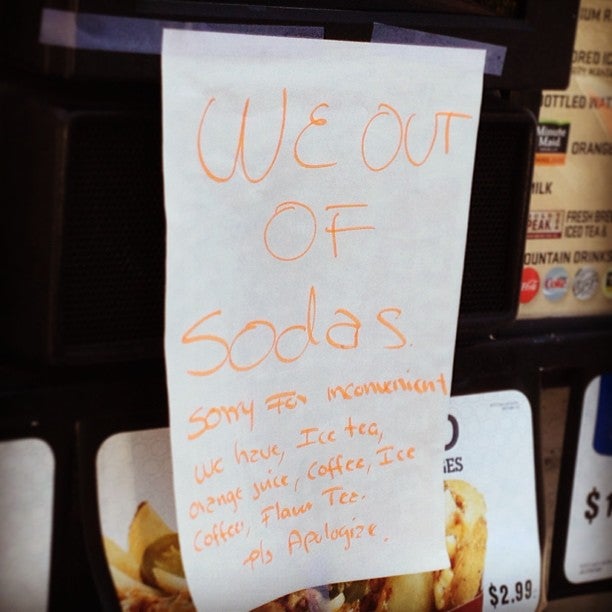 WE OUT
OF
Sodas.
Sorry For inconvenient
we have, Ice tea,
orange juice, Coffee, Ice
Coffee, Flavor Tea.
pls Apologize.
OTTLED WAT
Minute
Maid
ORANG
ILK
PEAK
FRESH BR
ICED TEA &
OUNTAIN DRINKS
Coke
GES
$2.99
$1